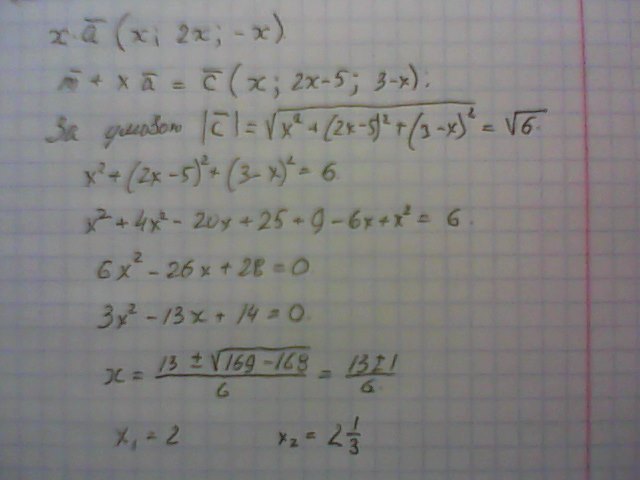 x·a̅ (x; 2x; -x)
m̅ + x a̅ = c̅ (x; 2x-5; 3-x).
За умовою |c̅| = √(x² + (2x-5)² + (3-x)²) = √6.
x² + (2x-5)² + (3-x)² = 6
x² + 4x² - 20x + 25 + 9 - 6x + x² = 6.
6x² - 26x + 28 = 0
3x² - 13x + 14 = 0.
x = (13 ± √(169-168))/6 = (13±1)/6
x₁ = 2 x₂ = 2 1/3